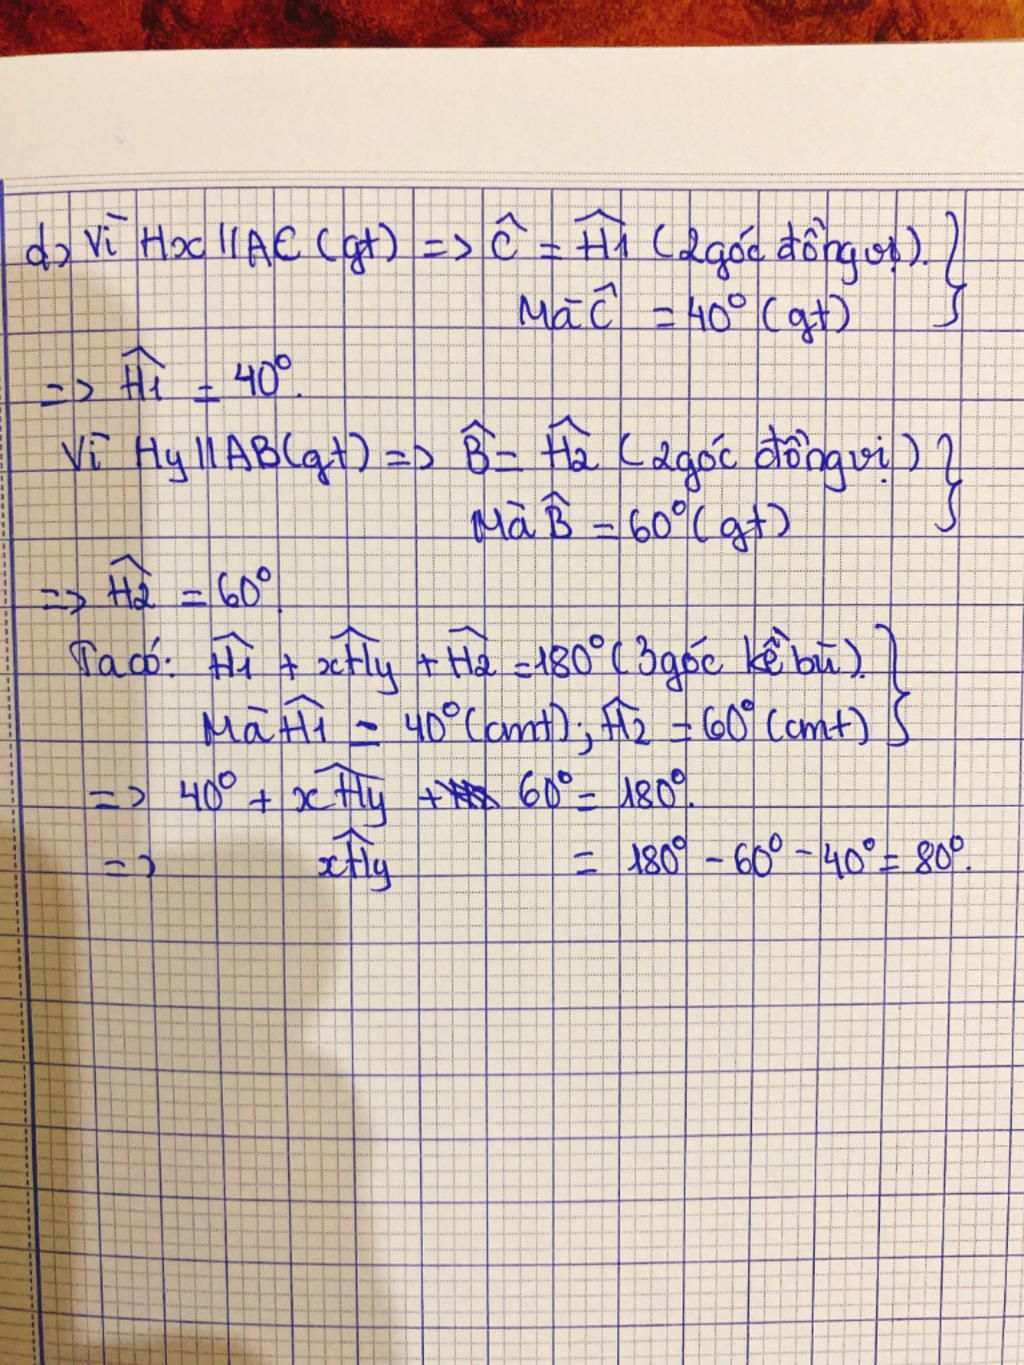 d> Vì Hx // AC (gt) => Ĉ = Ĥ1 (2 góc đồng vị). }
Mà Ĉ = 40° (gt)
=> Ĥ1 = 40°.
Vì Hy // AB (gt) => B̂ = Ĥ2 (2 góc đồng vị) }
Mà B̂ = 60° (gt)
=> Ĥ2 = 60°.
Ta có: Ĥ1 + xĤy + Ĥ2 = 180° (3 góc kề bù). }
Mà Ĥ1 = 40° (cmt); Ĥ2 = 60° (cmt)
=> 40° + xĤy + 60° = 180°.
=> xĤy = 180° - 60° - 40° = 80°.